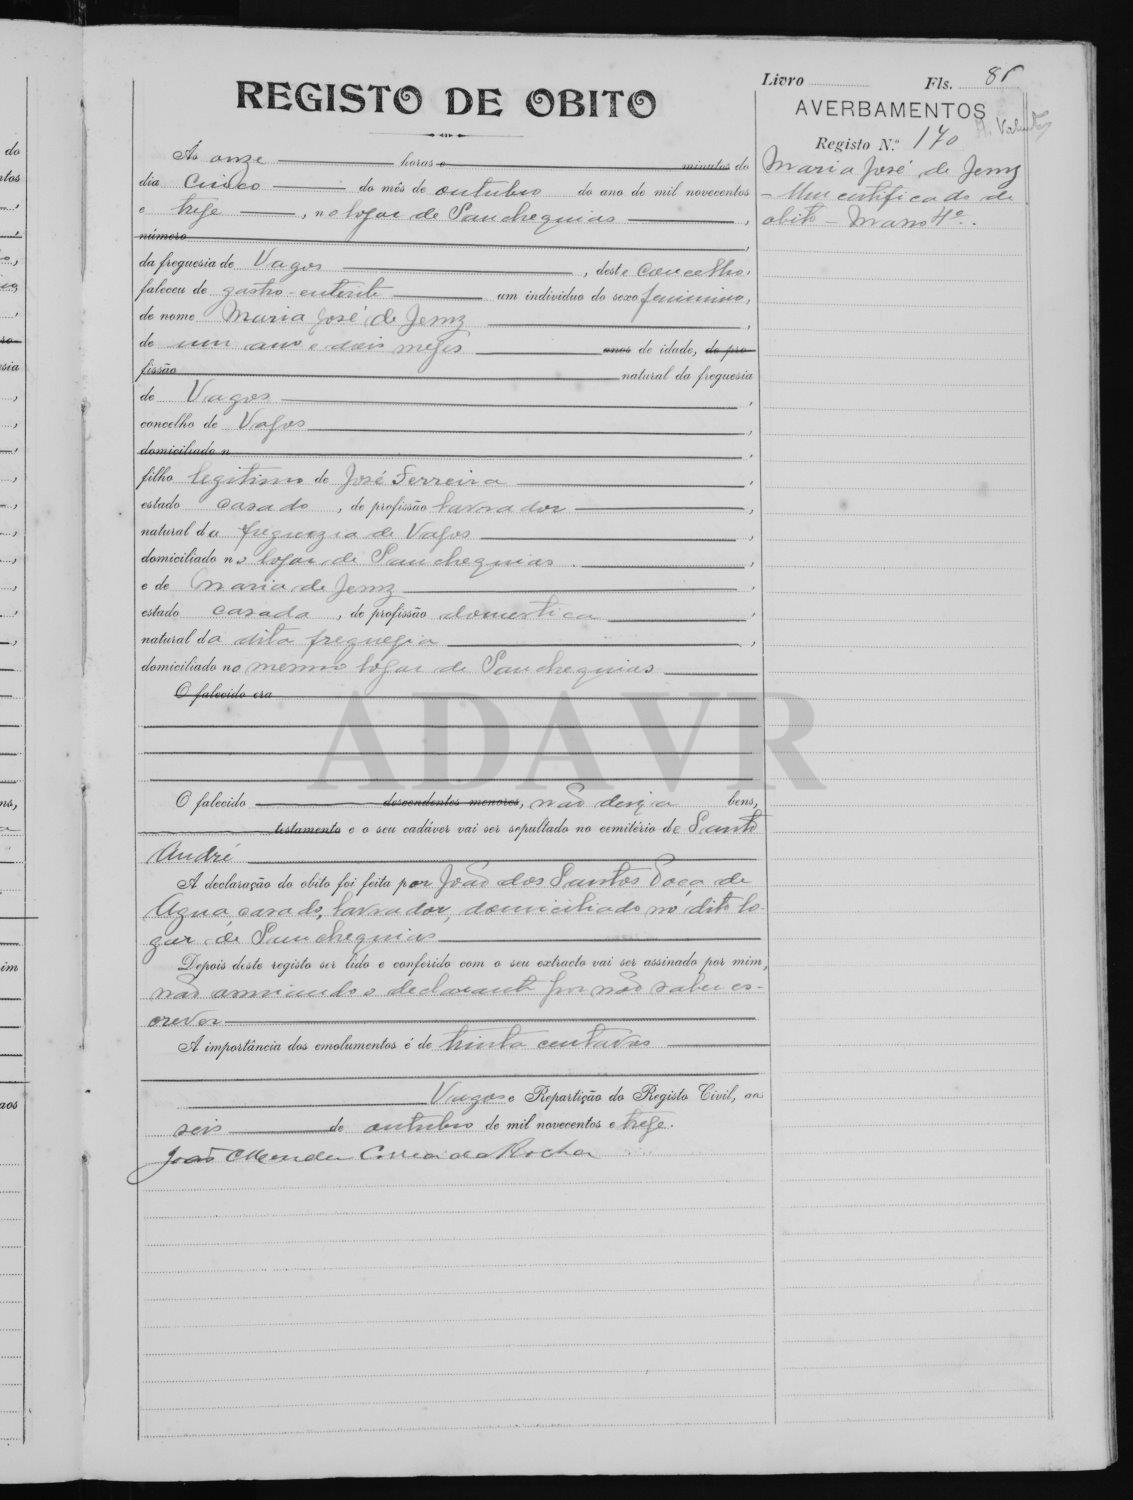 Livro Fls. 85
REGISTO DE OBITO
AVERBAMENTOS
Registo N.º 170
Ás onze horas e minutos do
dia cinco do mês de outubro do ano de mil novecentos
e treze, no logar de Sanchequias,
número
da freguesia de Vagos, deste concelho,
faleceu de gastro-enterite um individuo do sexo feminino,
de nome Maria José de Jesuz,
de um ano e dois mezes anos de idade, de pro
fissão natural da freguesia
de Vagos,
concelho de Vagos,
domiciliado n,
filho legitimo de José Ferreira,
estado casado, de profissão lavrador,
natural da freguezia de Vagos,
domiciliado no logar de Sanchequias,
e de Maria de Jesuz,
estado casada, de profissão domestica,
natural da dita freguezia,
domiciliado no mesmo logar de Sanchequias
O falecido era
O falecido descendentes menores, não deixa bens,
testamento e o seu cadáver vai ser sepultado no cemitério de Santo
André
A declaração do obito foi feita por João dos Santos Poça de
Agua, casado, lavrador, domiciliado no dito lo-
gar de Sanchequias
Depois deste registo ser lido e conferido com o seu extracto vai ser assinado por mim,
não assinando o declarante por não saber es-
crever
A importância dos emolumentos é de trinta centavos
Vagos e Repartição do Registo Civil, aos
seis de outubro de mil novecentos e treze.
João Mendes Correia da Rocha
Maria José de Jesuz
- Um certificado de
obito - Masso 4º.
ADAVR